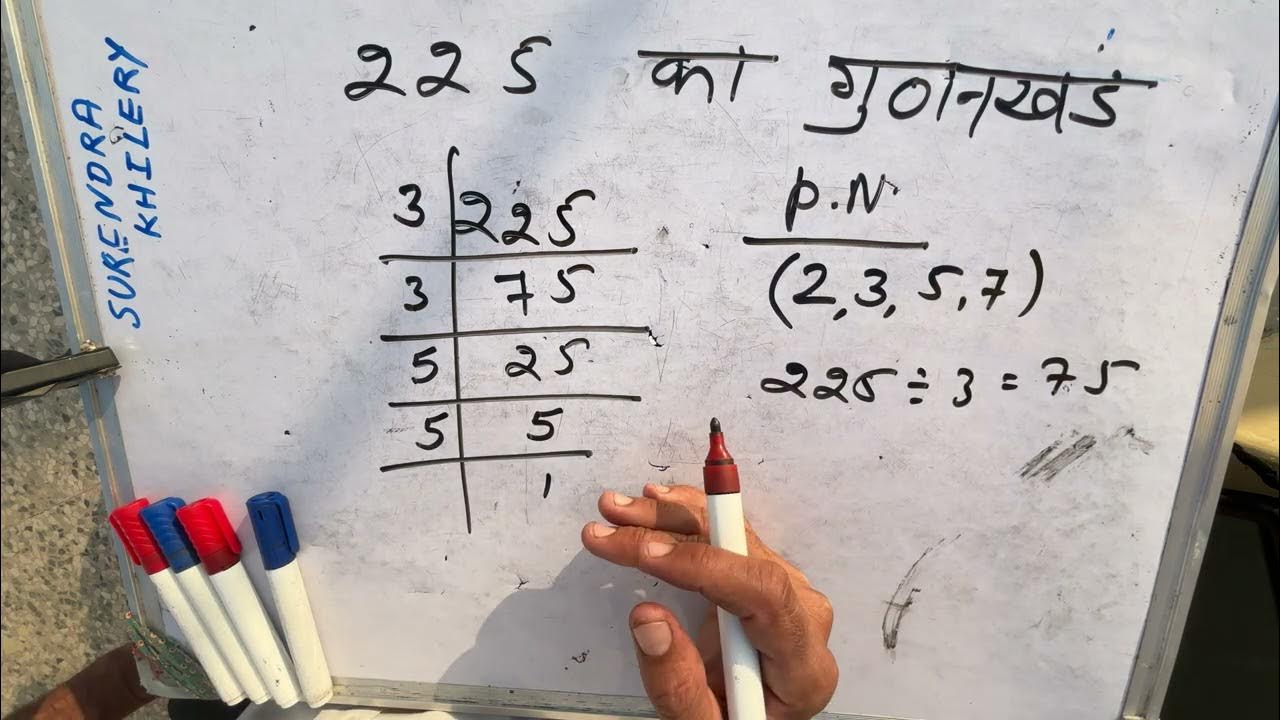 SURENDRA
KHILERY
225 का गुणनखंड
3 | 225
3 | 75
5 | 25
5 | 5
1
P.N
(2,3,5,7)
225 ÷ 3 = 75